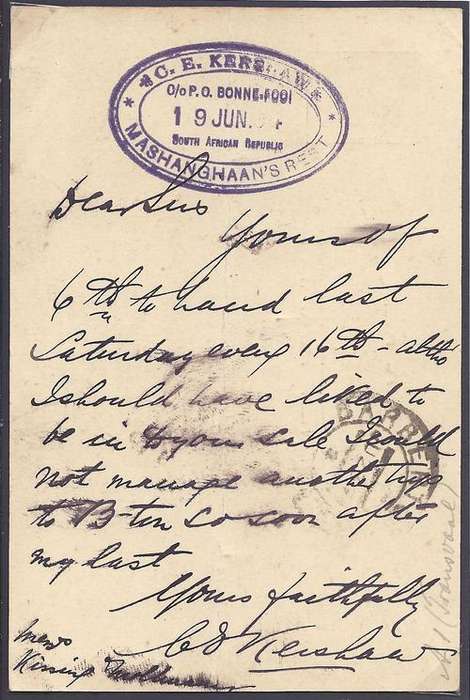 C. E. KERSHAW
C/o P. O. BONNE-FOOI
19 JUN.
SOUTH AFRICAN REPUBLIC
MASHANGHAAN'S REST
Dear Sirs
Yours of
6th to hand last
Saturday eveg 16th - altho
I should have liked to
be in to your sale I could
not manage another trip
to B-ton so soon after
my last
Yours faithfully
C E Kershaw
Messrs
BARBE
(Transvaal)